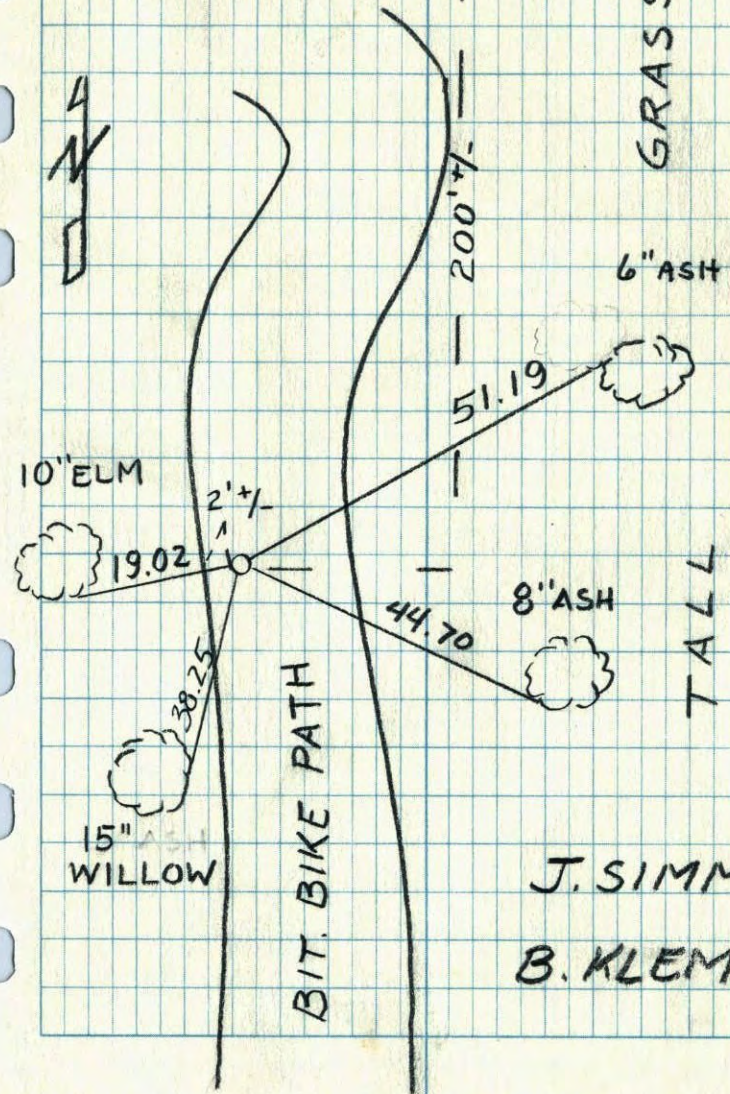 N
GRASS
200'+/-
6" ASH
51.19
10" ELM
2'+/-
19.02
8" ASH
44.70
38.25
TALL
15"
WILLOW
BIT. BIKE PATH
J. SIMM
B. KLEM